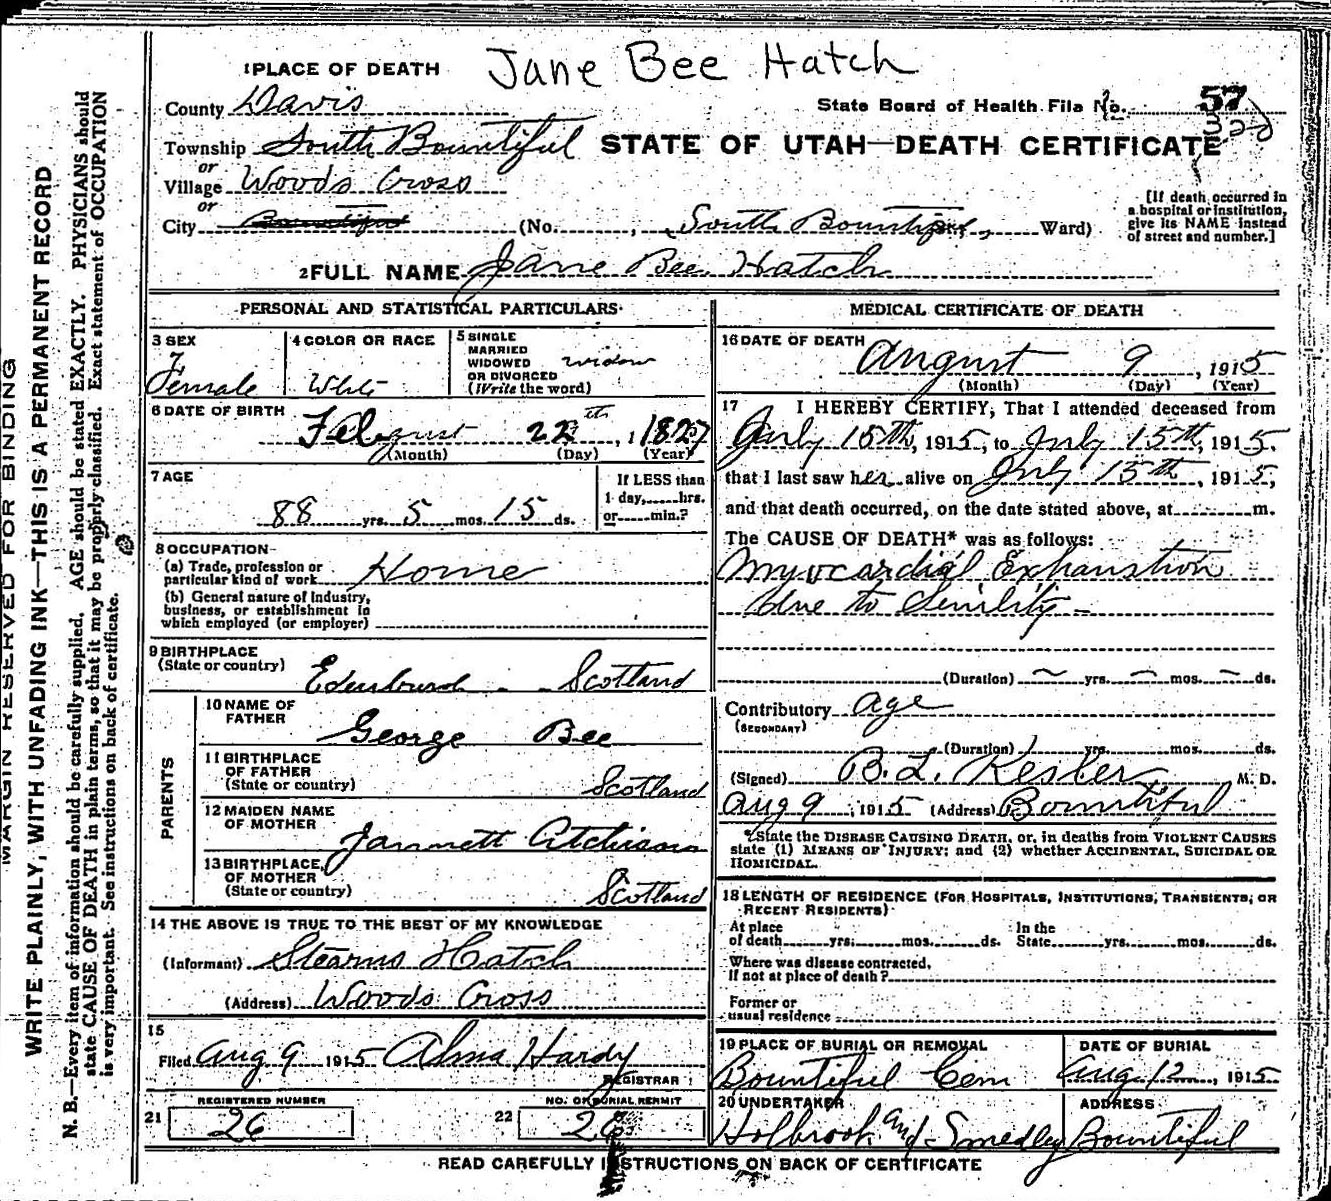 Jane Bee Hatch
1 PLACE OF DEATH
County Davis
State Board of Health File No. 57
Township South Bountiful
STATE OF UTAH—DEATH CERTIFICATE
or
Village Woods Cross
or
City Bountiful (No. , South Bountiful, Ward)
[If death occurred in
a hospital or institution,
give its NAME instead
of street and number.]
2 FULL NAME Jane Bee Hatch
PERSONAL AND STATISTICAL PARTICULARS
3 SEX
Female
4 COLOR OR RACE
White
5 SINGLE
MARRIED
WIDOWED
OR DIVORCED
(Write the word)
widow
6 DATE OF BIRTH
22th, 1827
(Month) (Day) (Year)
7 AGE
88 yrs. 5 mos. 15 ds.
If LESS than
1 day, hrs.
or min.?
8 OCCUPATION—
(a) Trade, profession or
particular kind of work Home
(b) General nature of industry,
business, or establishment in
which employed (or employer)
9 BIRTHPLACE
(State or country)
Edenburch - Scotland
PARENTS
10 NAME OF
FATHER
George Bee
11 BIRTHPLACE
OF FATHER
(State or country)
Scotland
12 MAIDEN NAME
OF MOTHER
Jannett Atchison
13 BIRTHPLACE
OF MOTHER
(State or country)
Scotland
14 THE ABOVE IS TRUE TO THE BEST OF MY KNOWLEDGE
(Informant) Stearns Hatch
(Address) Woods Cross
15
Filed Aug 9 1915 Alma Hardy
REGISTRAR
REGISTERED NUMBER
21 26
NO. OF BURIAL PERMIT
22 26
MEDICAL CERTIFICATE OF DEATH
16 DATE OF DEATH
August 9, 1915
(Month) (Day) (Year)
17 I HEREBY CERTIFY, That I attended deceased from
July 15th, 1915, to July 15th, 1915.
that I last saw her alive on July 15th, 1915,
and that death occurred, on the date stated above, at m.
The CAUSE OF DEATH* was as follows:
Myocardial Exhaustion
due to Senility -
(Duration) yrs. mos. ds.
Contributory age
(SECONDARY)
(Duration) yrs. mos. ds.
(Signed) B. L. Kesler M. D.
Aug 9, 1915 (Address) Bountiful
*State the DISEASE CAUSING DEATH, or, in deaths from VIOLENT CAUSES
state (1) MEANS OF INJURY; and (2) whether ACCIDENTAL, SUICIDAL OR
HOMICIDAL.
18 LENGTH OF RESIDENCE (FOR HOSPITALS, INSTITUTIONS, TRANSIENTS, OR
RECENT RESIDENTS)
At place
of death yrs. mos. ds.
In the
State yrs. mos. ds.
Where was disease contracted,
If not at place of death?
Former or
usual residence
19 PLACE OF BURIAL OR REMOVAL
Bountiful Cem
DATE OF BURIAL
Aug 12, 1915
20 UNDERTAKER
Holbrook and Smedley
ADDRESS
Bountiful
READ CAREFULLY INSTRUCTIONS ON BACK OF CERTIFICATE
MARGIN RESERVED FOR BINDING
WRITE PLAINLY, WITH UNFADING INK—THIS IS A PERMANENT RECORD
N. B.—Every item of information should be carefully supplied. AGE should be stated EXACTLY. PHYSICIANS should
state CAUSE OF DEATH in plain terms, so that it may be properly classified. Exact statement of OCCUPATION
is very important. See instructions on back of certificate.